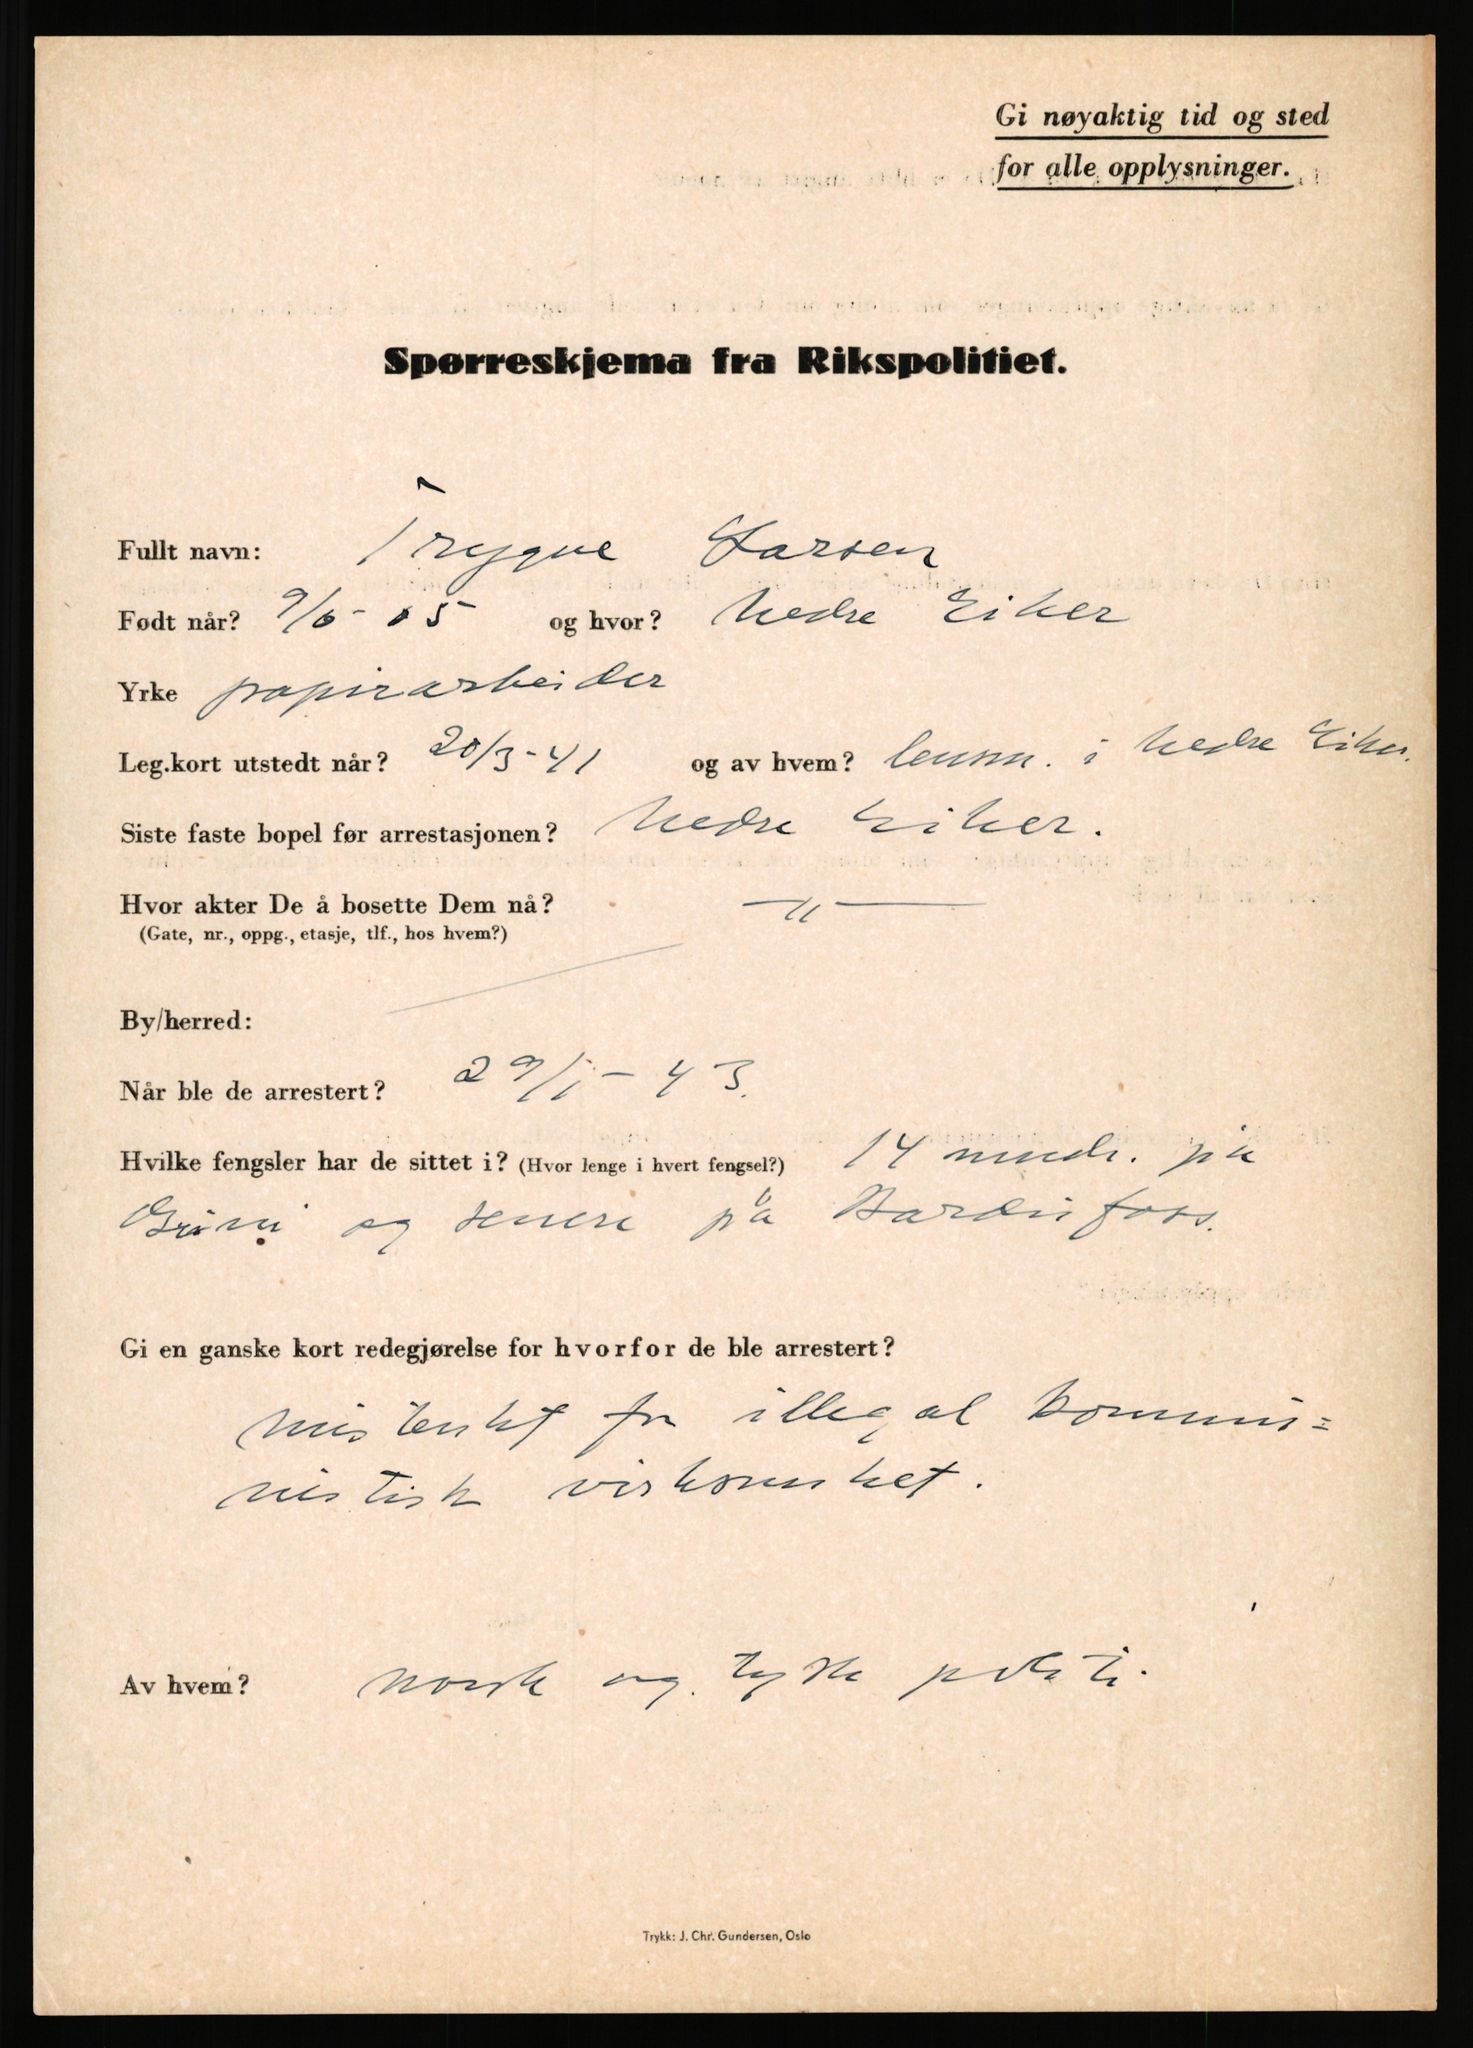 Gi nøyaktig tid og sted
for alle opplysninger.
Spørreskjema fra Rikspolitiet.
Fullt navn: Trygve Larsen
Født når? 9/6-05 og hvor? Nedre Eiker
Yrke papirarbeider
Leg.kort utstedt når? 20/3-41 og av hvem? lensm. i Nedre Eiker.
Siste faste bopel før arrestasjonen? Nedre Eiker.
Hvor akter De å bosette Dem nå? —"—
(Gate, nr., oppg., etasje, tlf., hos hvem?)
By/herred:
Når ble de arrestert? 29/1-43.
Hvilke fengsler har de sittet i? (Hvor lenge i hvert fengsel?) 14 mndr. på
Grini og senere på Bardufoss.
Gi en ganske kort redegjørelse for hvorfor de ble arrestert?
mistenkt for illegal kommu=
nistisk virksomhet.
Av hvem? norsk og tysk politi.
Trykk: J. Chr. Gundersen, Oslo